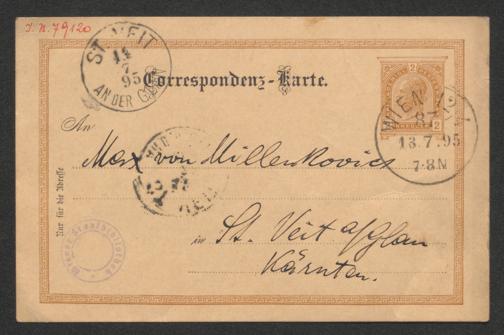 I. N. 79120
ST. VEIT
14
7
95
AN DER GLAN
2
Correspondenz-Karte.
WIEN
87
13.7.95
7-8N
2 2
An
Max von Millenkovics
Nur für die Adresse
in St. Veit a/Glan
Kärnten.
Wiener Stadtbibliothek